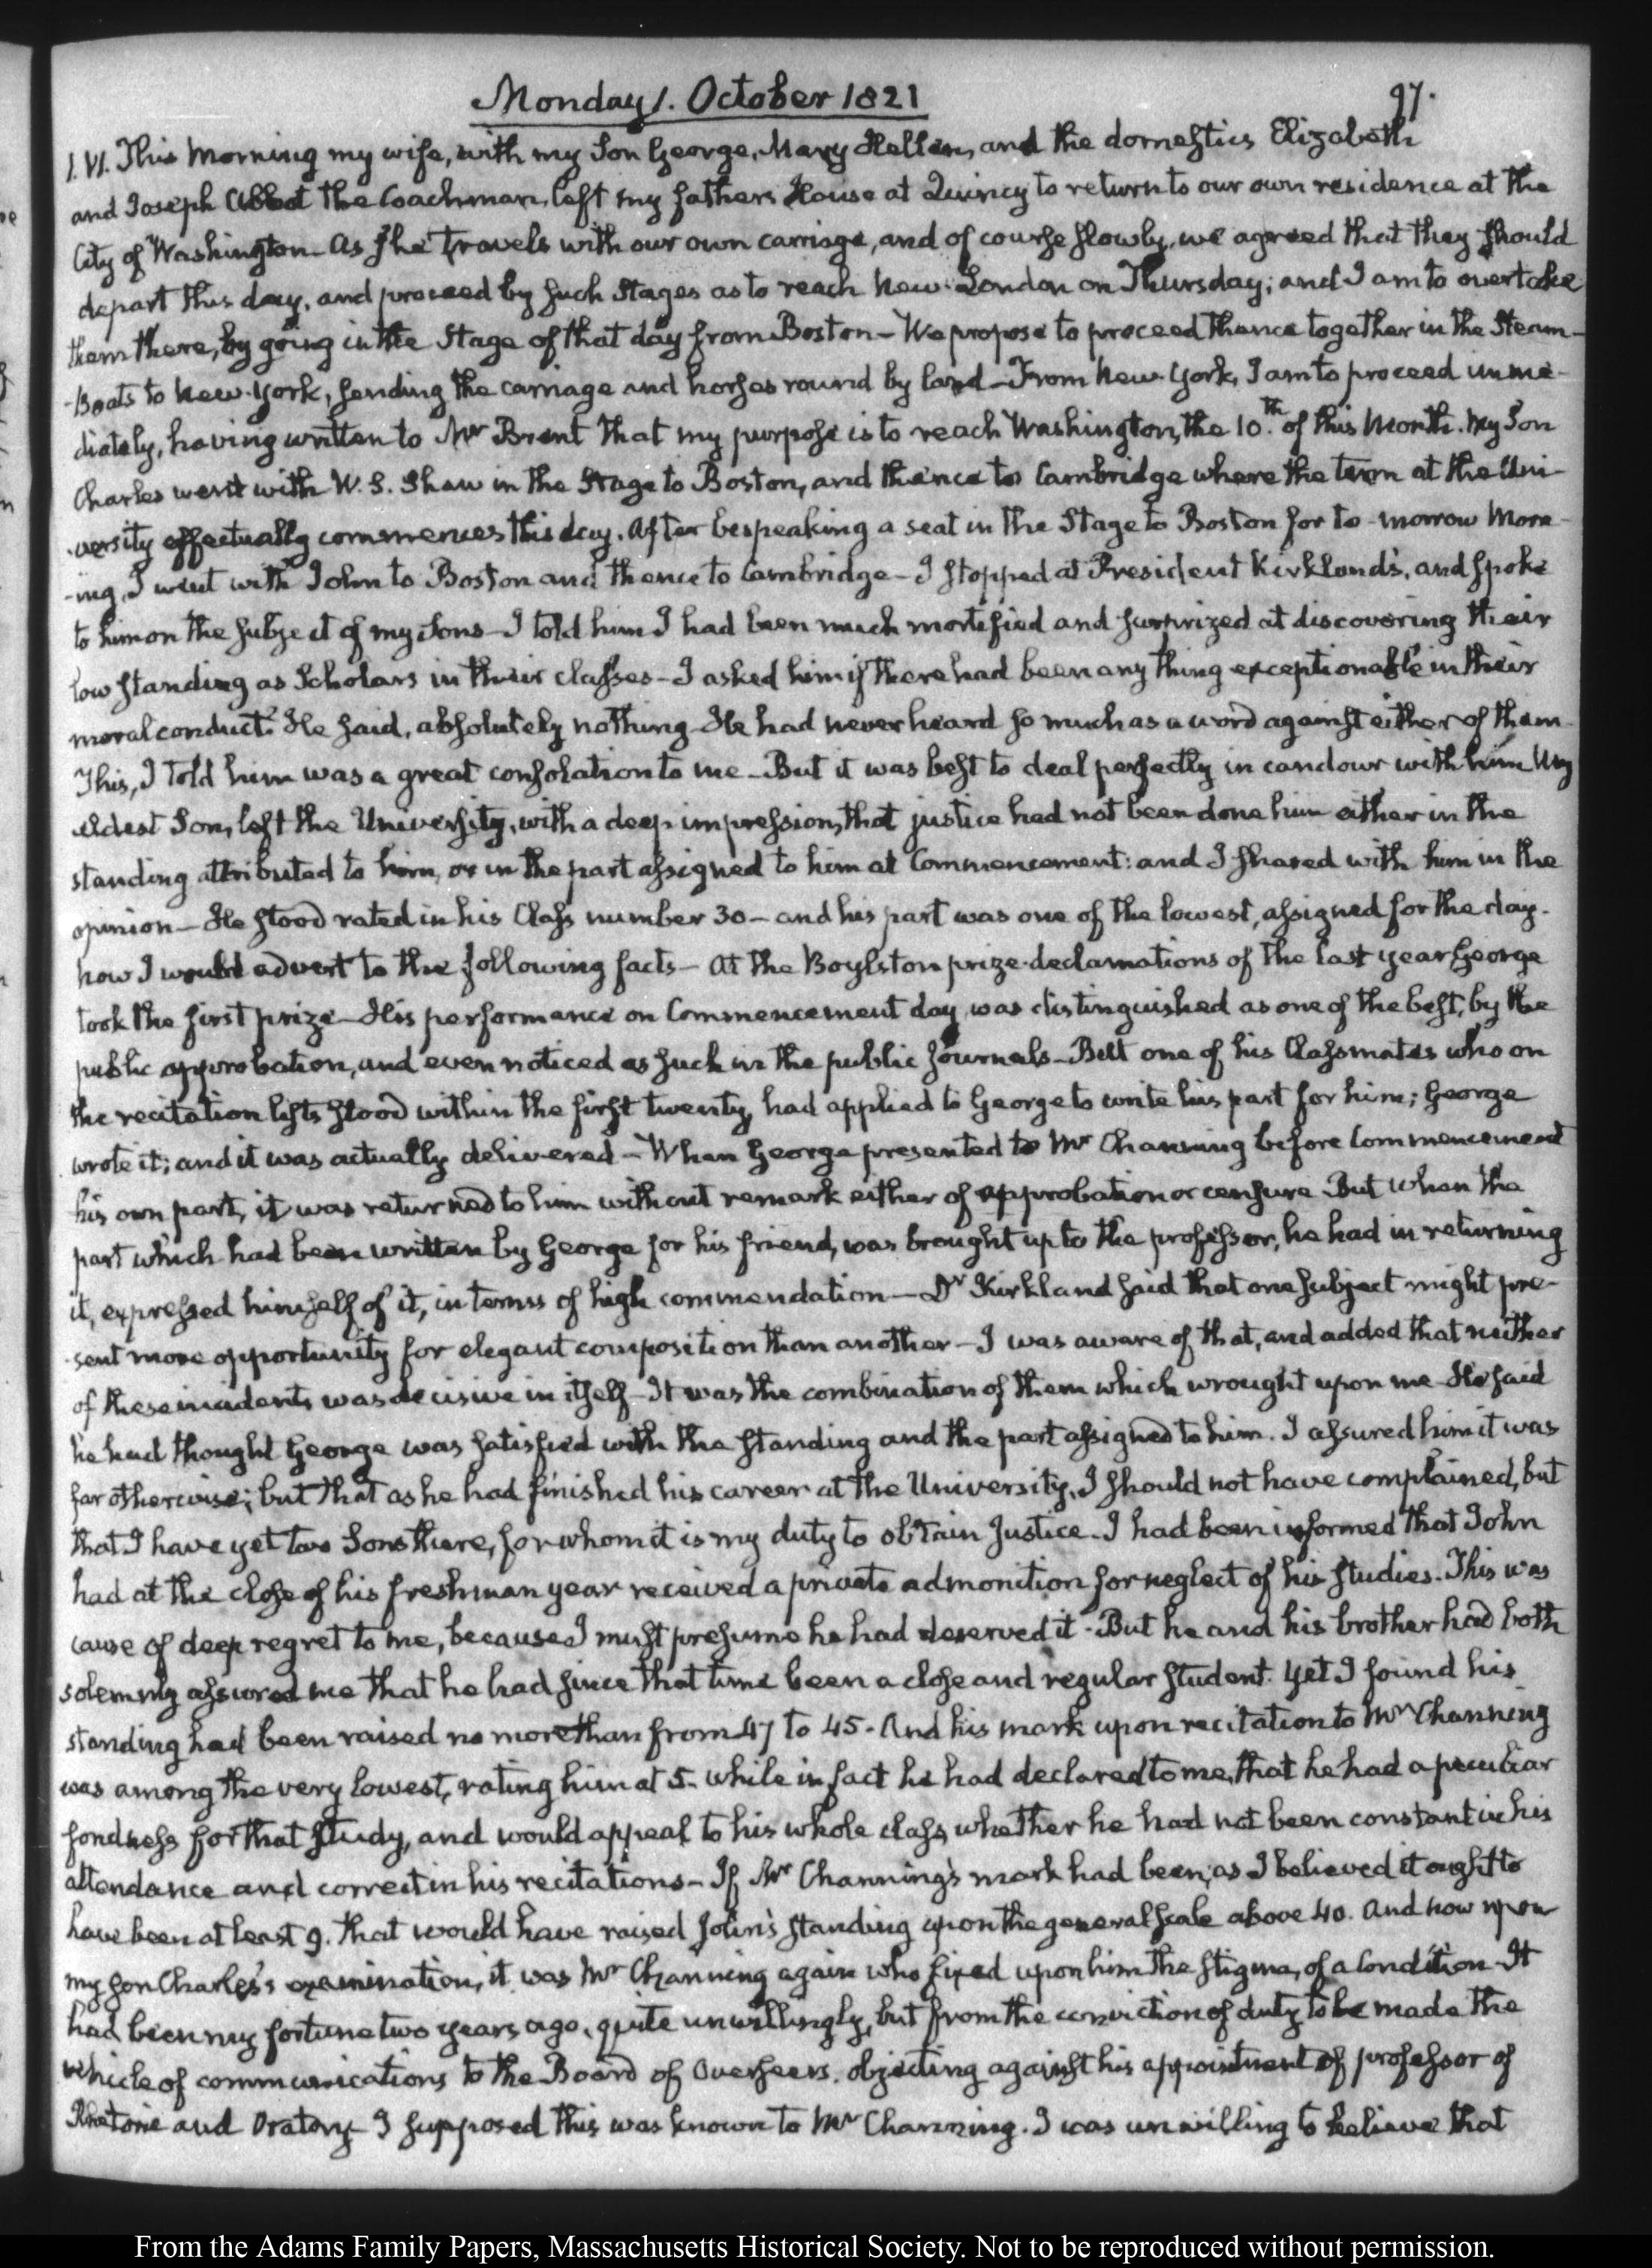 Monday 1. October 1821
97.
1. VI. This Morning my wife, with my Son George, Mary Hellen, and the domestics Elizabeth
and Joseph Abbot the Coachman, left my fathers House at Quincy to return to our own residence at the
City of Washington. As she travels with our own carriage, and of course slowly, we agreed that they should
depart this day, and proceed by such Stages as to reach New-London on Thursday; and I am to overtake
them there, by going in the Stage of that day from Boston- We propose to proceed thence together in the Steam-
-Boats to New-York, sending the carriage and horses round by land- From New-York, I am to proceed imme-
diately, having written to Mr Brent that my purpose is to reach Washington, the 10.th of this Month. My Son
Charles went with W. S. Shaw in the Stage to Boston, and thence to Cambridge where the term at the Uni-
-versity effectually commences this day. After bespeaking a seat in the Stage to Boston for to-morrow Morn-
-ing, I went with John to Boston and thence to Cambridge- I stopped at President Kirkland's, and spoke
to him on the subject of my Sons- I told him I had been much mortified and surprized at discovering their
low standing as Scholars in their classes- I asked him if there had been any thing exceptionable in their
moral conduct. He said, absolutely nothing- He had never heard so much as a word against either of them-
This, I told him was a great consolation to me- But it was best to deal perfectly in candour with him My
eldest Son, left the University, with a deep impression, that justice had not been done him either in the
standing attributed to him, or in the part assigned to him at Commencement: and I shared with him in the
opinion- He stood rated in his Class number 30- and his part was one of the lowest, assigned for the day.
now I would advert to the following facts- At the Boylston prize-declamations of the last year George
took the first prize- His performance on Commencement day was distinguished as one of the best, by the
public approbation, and even noticed as such in the public Journals- But one of his Classmates who on
the recitation lists stood within the first twenty, had applied to George to write his part for him; George
wrote it; and it was actually delivered- When George presented to Mr Channing before Commencement
his own part, it was returned to him without remark either of approbation or censure But when the
part which had been written by George for his friend, was brought up to the professor, he had in returning
it, expressed himself of it, in terms of high commendation- Dr Kirkland said that one subject might pre-
-sent more opportunity for elegant composition than another- I was aware of that, and added that neither
of these incidents was decisive in itself- It was the combination of them which wrought upon me- He said
he had thought George was satisfied with the standing and the part assigned to him. I assured him it was
far otherwise; but that as he had finished his career at the University, I should not have complained, but
that I have yet two Sons there, for whom it is my duty to obtain Justice. I had been informed that John
had at the close of his freshman year received a private admonition for neglect of his studies. This was
cause of deep regret to me, because I must presume he had deserved it- But he and his brother had both
solemnly assured me that he had since that time been a close and regular student. Yet I found his
standing had been raised no more than from 47 to 45- And his mark upon recitation to Mr Channing
was among the very lowest, rating him at 5- while in fact he had declared to me, that he had a peculiar
fondness for that study, and would appeal to his whole class, whether he had not been constant in his
attendance and correct in his recitations- If Mr Channing's mark had been, as I believed it ought to
have been at least 9. that would have raised John's standing upon the general scale above 40. And now upon
my son Charles's examination, it was Mr Channing again who fixed upon him the stigma, of a Condition- It
had been my fortune two years ago, quite unwillingly, but from the conviction of duty to be made the
vehicle of communications to the Board of Overseers, objecting against his appointment of professor of
Rhetoric and Oratory- I supposed this was known to Mr Channing. I was unwilling to believe that
From the Adams Family Papers, Massachusetts Historical Society. Not to be reproduced without permission.